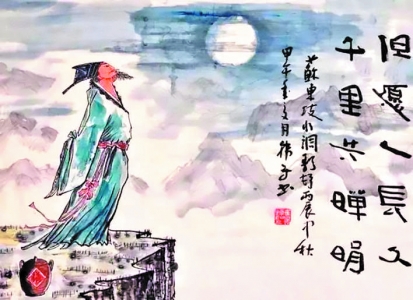 但愿人長久
千里共嬋娟
蘇東坡水調歌頭丙辰中秋
甲午月